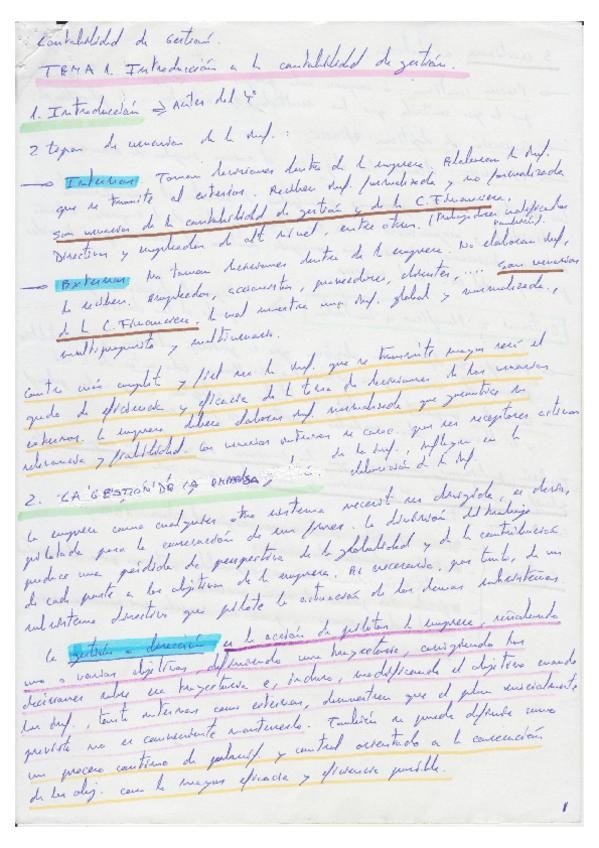 Contabilidad de Gestión.
TEMA 1. Introducción a la contabilidad de gestión.
1. Introducción → Antes del 4º
2 tipos de usuarios de la inf. :
→ Internos Toman decisiones dentro de la empresa. Elaboran la inf.
que se transmite al exterior. Reciben inf. formalizada y no formalizada
son usuarios de la contabilidad de gestión y de la C. Financiera.
Directivos y empleados de alt nivel, entre otros. (Trabajadores
→ Externos No toman decisiones dentro de la empresa. No elaboran inf,
la reciben. Empleados, accionistas, proveedores, clientes, .... son usuarios
de la C. Financiera, la cual muestra una inf. global y normalizada,
multipropósito y multiusuario.
Cuanto más completa y fiel sea la inf. que se transmite mayor será el
grado de eficiencia y eficacia de la toma de decisiones de los usuarios
externos. La empresa deberá elaborar inf. normalizada que garantice su
relevancia y fiabilidad. Los usuarios internos se carac. por ser receptores activos
de la inf., influyen en la
elaboración de la inf
2. LA GESTIÓN DE LA EMPRESA
La empresa como cualquier otro sistema necesit ser dirigida, es decir,
pilotada para la consecución de sus fines. La división del trabajo
produce una pérdida de perspectiva de la globalidad y de la contribución
de cada parte a los objetivos de la empresa. Es necesario, por tanto, de un
subsistema directivo que pilote la actuación de los demas subsistemas.
La gestión o dirección es la acción de pilotar la empresa, señalando
uno o varios objetivos, definiendo una trayectoria, corrigiendo las
decisiones sobre esa trayectoria e, incluso, modificando el objetivo cuando
las inf, tanto internas como externas, demuestren que el plan inicialmente
previsto no es conveniente mantenerlo. También se puede definir como
un proceso continuo de planif. y control orientado a la consecución
de los obj. con la mayor eficacia y eficiencia posible.
1